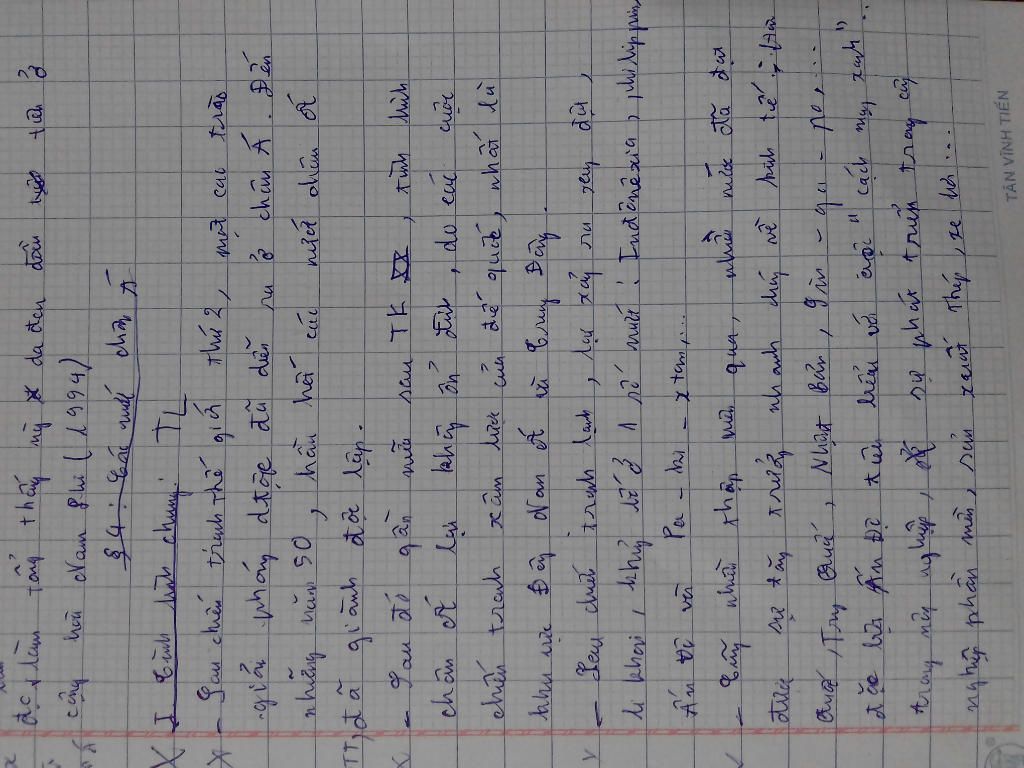 đc làm tổng thống Mỹ da đen đầu tiên ở
cộng hòa Nam Phi (1994)
§4: Các nước châu Á
I Tình hình chung: TL
- Sau chiến tranh thế giới thứ 2, một cao trào
giải phóng được đã diễn ra ở châu Á. Đến
những năm 50, hầu hết các nước châu Á
đã giành độc lập.
- Sau đó gần nữa sau TK XX, tình hình
châu Á lại không ổn định, do các cuộc
chiến tranh xâm lược của đế quốc, nhất là
khu vực Đông Nam Á và Trung Đông.
- Sau chiến tranh lạnh, lại xảy ra xung đột,
li khai, khủng bố ở 1 số nước: Inđônêxia, philippin,
Ấn Độ và Pa-ki-xtan,...
- Cũng nhiều thập niên qua, nhiều nước đã đạt
được sự tăng trưởng nhanh chóng về kinh tế:
Quốc, Trung Quốc, Nhật Bản, Xin-ga-po,...
đặc biệt Ấn Độ tiêu biểu với cuộc "cách mạng xanh"
trong nông nghiệp, sự phát triển trong công
nghiệp phần mềm, sản xuất thép, xe hơi...
TÂN VĨNH TIẾN